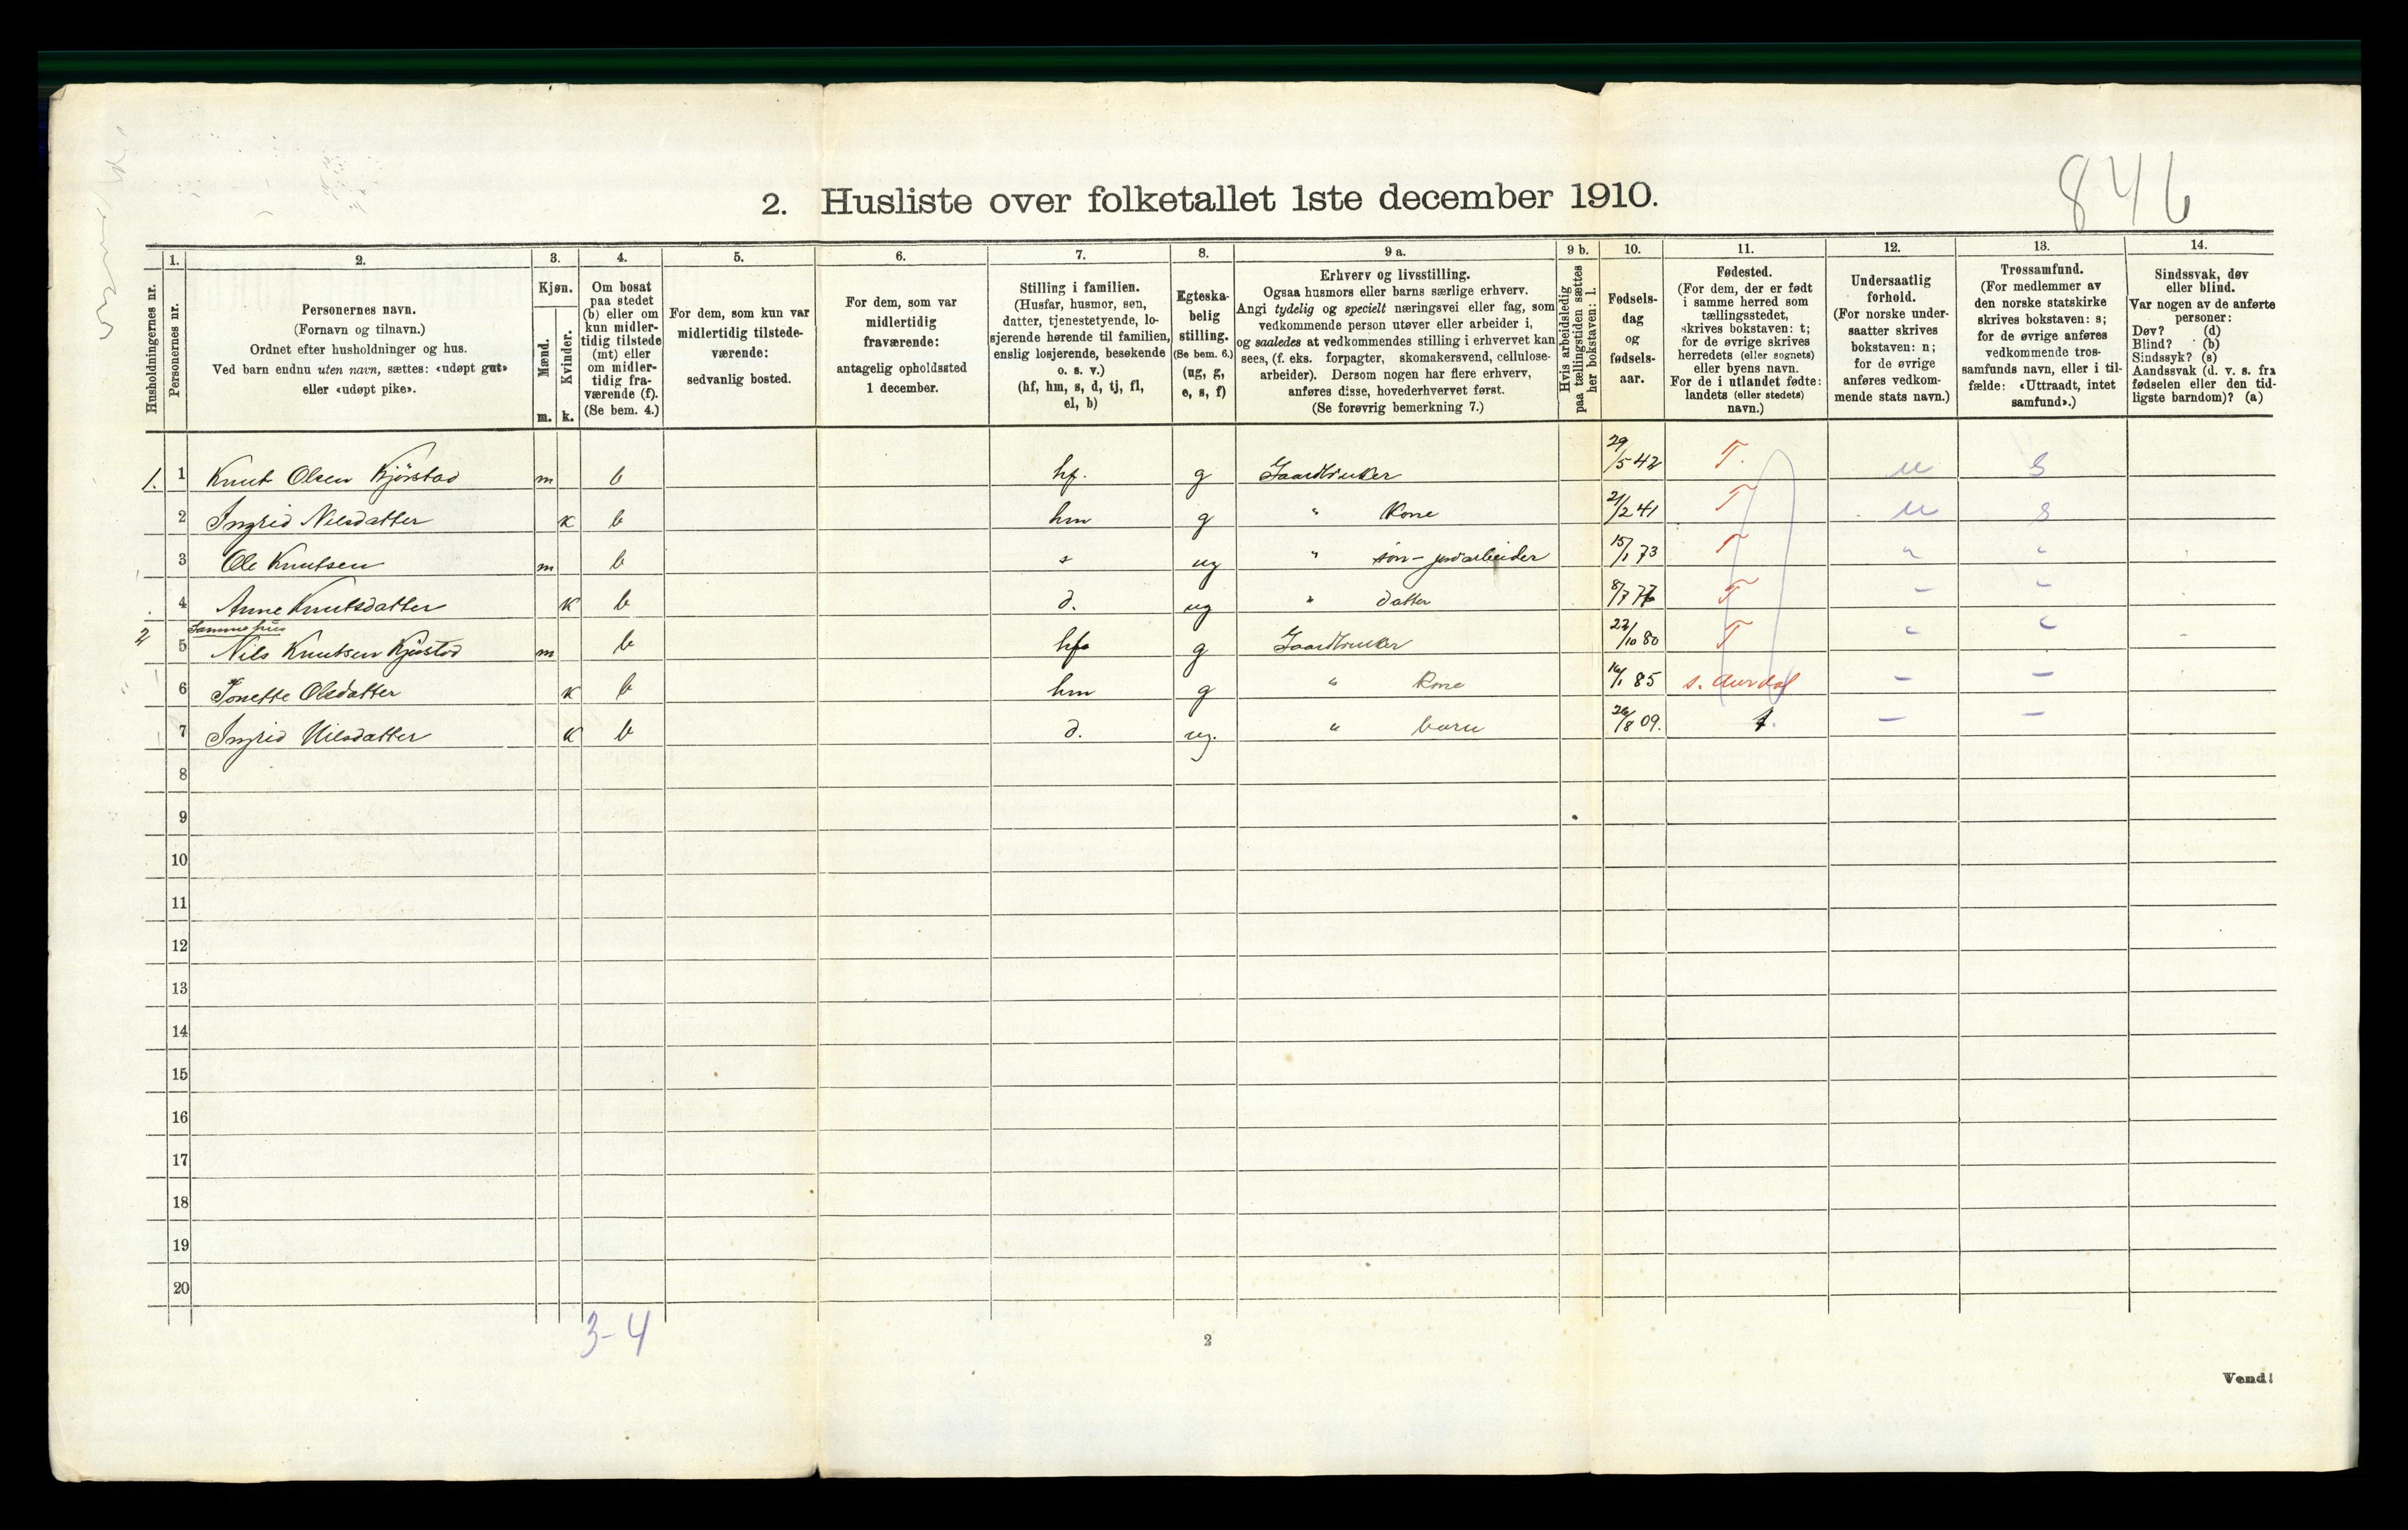 846
2. Husliste over folketallet 1ste december 1910.
Husholdningernes nr.
1.
Personernes nr.
2.
Personernes navn.
(Fornavn og tilnavn.)
Ordnet efter husholdninger og hus.
Ved barn endnu uten navn, sættes: «udøpt gut»
eller «udøpt pike».
3.
Kjøn.
Mænd.
m.
Kvinder.
k.
4.
Om bosat
paa stedet
(b) eller om
kun midler-
tidig tilstede
(mt) eller
om midler-
tidig fra-
værende (f).
(Se bem. 4.)
5.
For dem, som kun var
midlertidig tilstede-
værende:
sedvanlig bosted.
6.
For dem, som var
midlertidig
fraværende:
antagelig opholdssted
1 december.
7.
Stilling i familien.
(Husfar, husmor, søn,
datter, tjenestetyende, lo-
sjerende hørende til familien,
enslig losjerende, besøkende
o. s. v.)
(hf, hm, s, d, tj, fl,
el, b)
8.
Egteska-
belig
stilling.
(Se bem. 6.)
(ug, g,
e, s, f)
9 a.
Erhverv og livsstilling.
Ogsaa husmors eller barns særlige erhverv.
Angi tydelig og specielt næringsvei eller fag, som
vedkommende person utøver eller arbeider i,
og saaledes at vedkommendes stilling i erhvervet kan
sees, (f. eks. forpagter, skomakersvend, cellulose-
arbeider). Dersom nogen har flere erhverv,
anføres disse, hovederhvervet først.
(Se forøvrig bemerkning 7.)
9 b.
Hvis arbeidsledig
paa tællingstiden sættes
her bokstaven: l.
10.
Fødsels-
dag
og
fødsels-
aar.
11.
Fødested.
(For dem, der er født
i samme herred som
tællingsstedet,
skrives bokstaven: t;
for de øvrige skrives
herredets (eller sognets)
eller byens navn.
For de i utlandet fødte:
landets (eller stedets)
navn.)
12.
Undersaatlig
forhold.
(For norske under-
saatter skrives
bokstaven: n;
for de øvrige
anføres vedkom-
mende stats navn.)
13.
Trossamfund.
(For medlemmer av
den norske statskirke
skrives bokstaven: s;
for de øvrige anføres
vedkommende tros-
samfunds navn, eller i til-
fælde: «Uttraadt, intet
samfund».)
14.
Sindssvak, døv
eller blind.
Var nogen av de anførte
personer:
Døv? (d)
Blind? (b)
Sindssyk? (s)
Aandssvak (d. v. s. fra
fødselen eller den tid-
ligste barndom)? (a)
1. 1 Knut Olsen Kjörstad m b hf. g Gaardbruker 29/5 42 T. n s
2 Ingrid Nilsdatter k b hm g " Kone 21/2 41 T n s
3 Ole Knutsen m b s ug " sön - jordarbeider 15/1 73 T " "
4 Anne Knutsdatter k b d. ug " datter 8/7 T - -
2 Samme hus
5 Nils Knutsen Kjørstad m b hf g Gaardbruker 10 80 T " "
6 Jonette Olsdatter k b hm g " Kone 85 s. Aurdal - -
7 Ingrid Nilsdatter k b d. ug. " barn 26/8 09. t. - -
8
9
10
11
12
13
14
15
16
17
18
19
20
3-4
2
Vend!